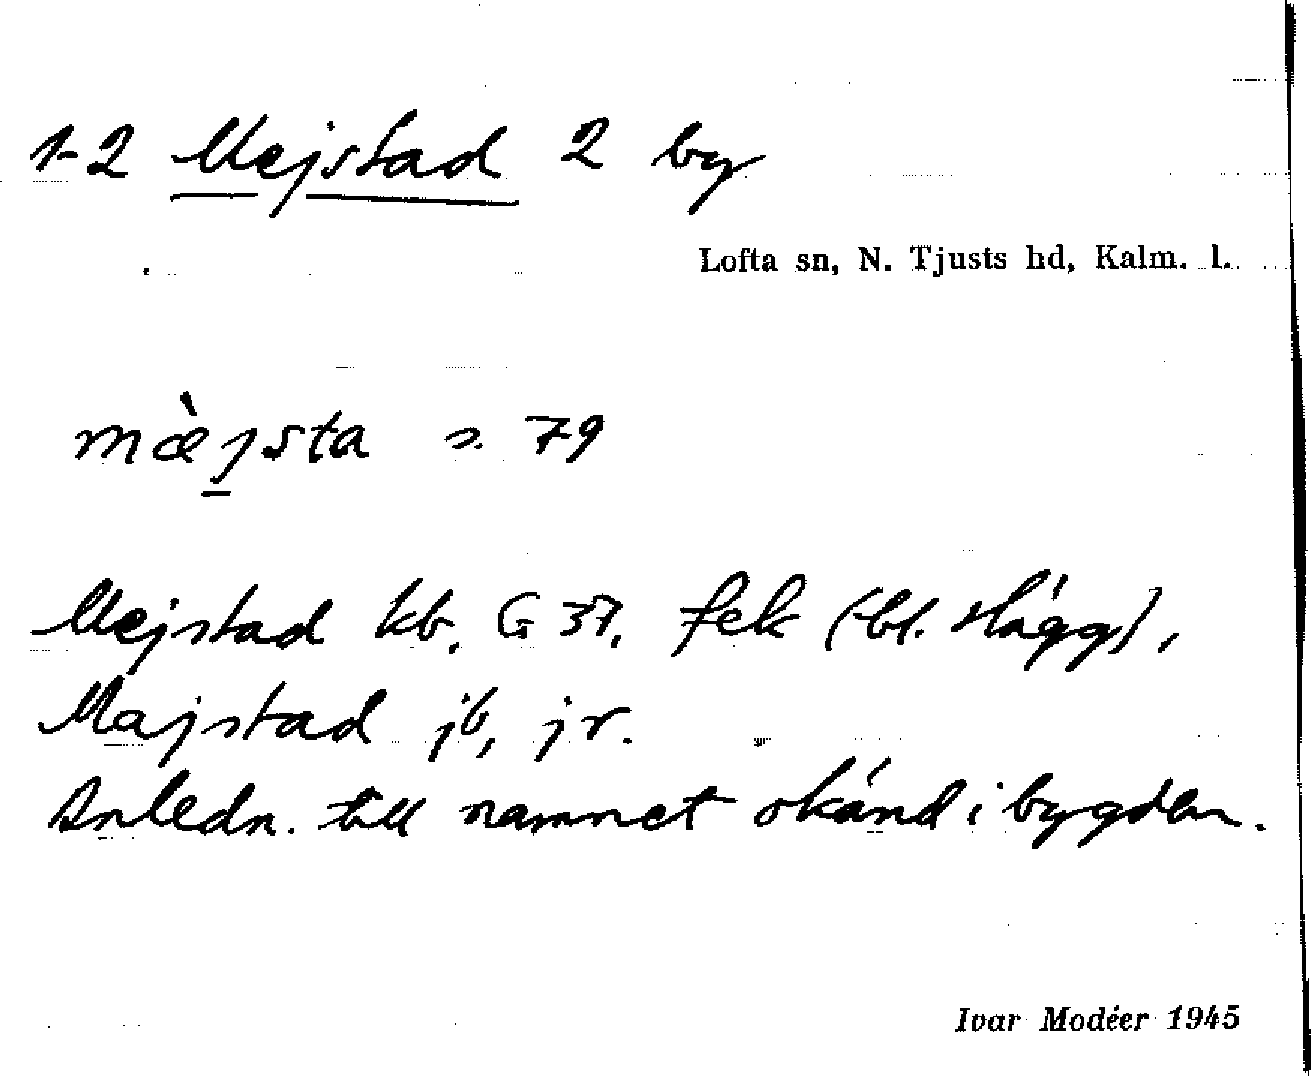 1-2 Mejstad 2 by
Lofta sn, N. Tjusts hd, Kalm. l.
mæ̀jsta s. 79
Mejstad kb. G 37. fek (bl. Hägg),
Majstad jb, jr.
Anledn. till namnet okänd i bygden.
Ivar Modéer 1945